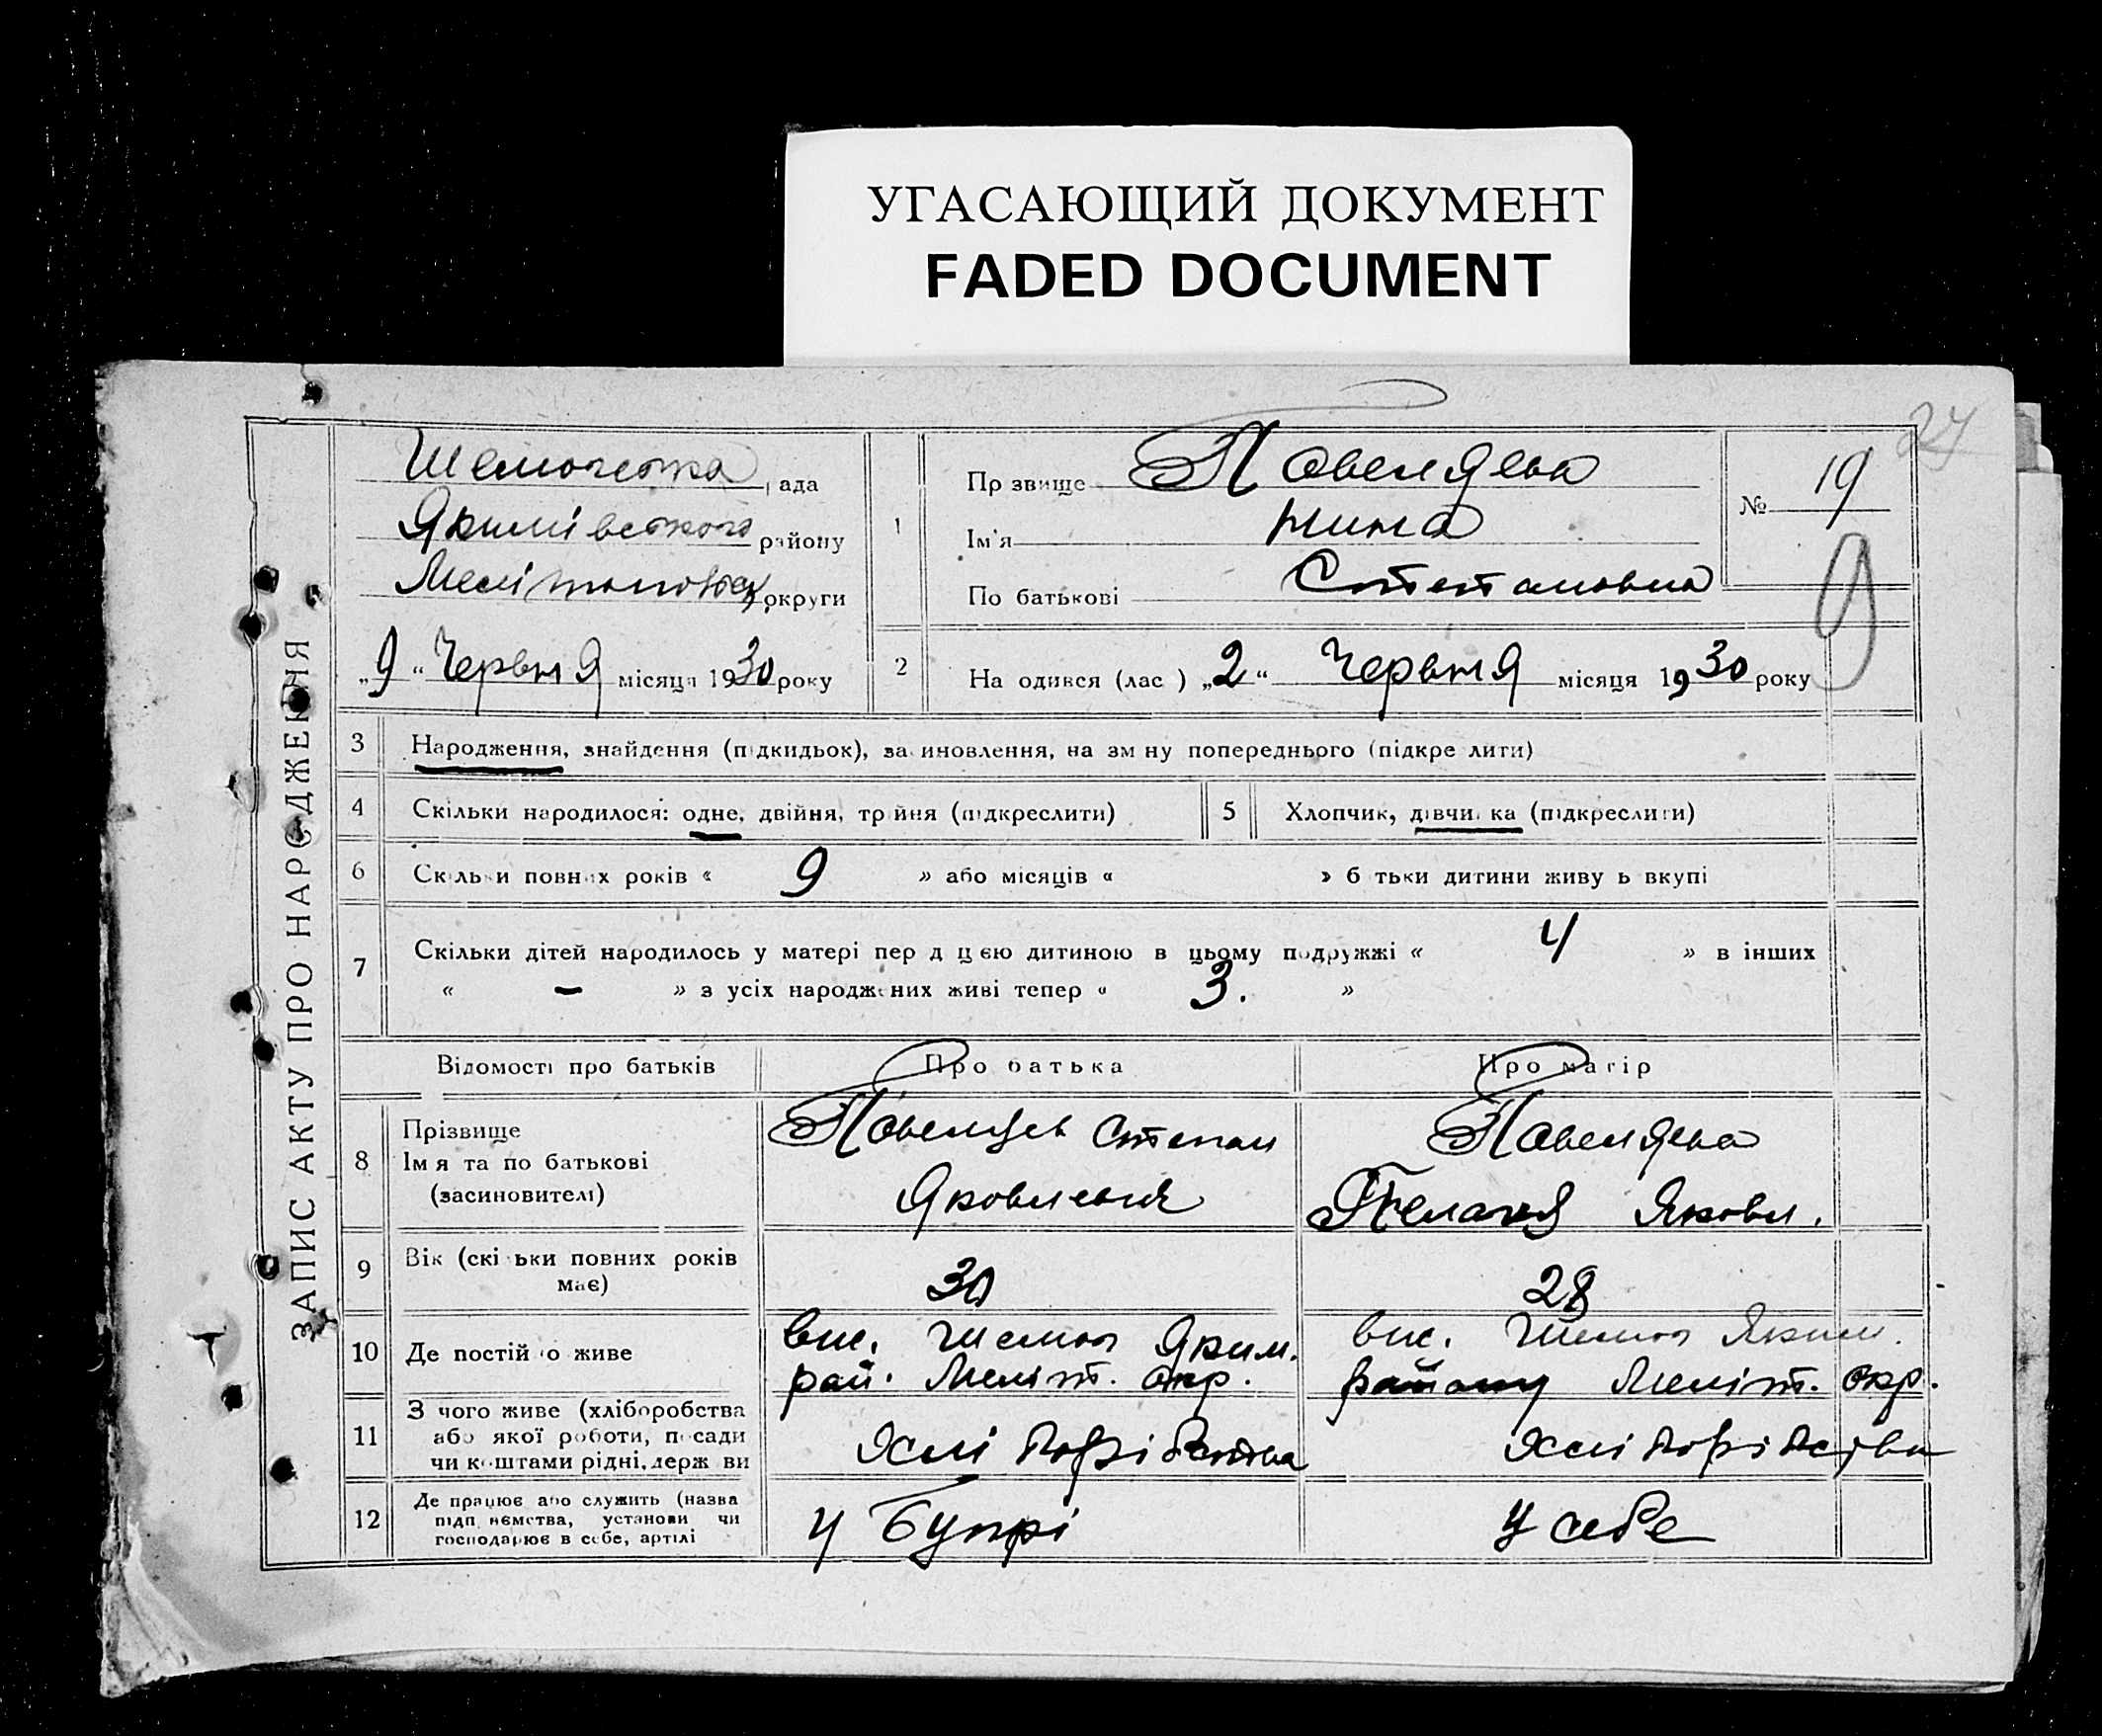 УГАСАЮЩИЙ ДОКУМЕНТ
FADED DOCUMENT
27
ЗАПИС АКТУ ПРО НАРОДЖЕННЯ
ада
Якимівського району
округи
„9“ Червня місяця 1930 року
1
Пр звище
Ім'я Нина
По батькові Степановна
№ 19
2
На одився (лас ) „2“ Червня місяця 1930 року
3 Народження, знайдення (підкидьок), за иновлення, на зм ну попереднього (підкре лити)
4 Скільки народилося: одне, двійня, тр йня (підкреслити)
5 Хлопчик, дівчи ка (підкреслити)
6 Скільки повних років « 9 » або місяців « » б тьки дитини живу ь вкупі
7 Скільки дітей народилось у матері пер д цією дитиною в цьому подружжі « 4 » в інших
« – » з усіх народжених живі тепер « 3. »
Відомості про батьків
Про батька
Про матір
8 Прізвище
Ім я та по батькові
(засиновителі)
Степан
Яковлевич
Пелагея Яковл.
9 Вік (скі ьки повних років
має)
30
28
10 Де постій о живе
вис. Яким.
рай. Меліт. окр.
вис. Яким.
району Меліт. окр.
11 З чого живе (хліборобства
або якої роботи, посади
чи коштами рідні, держ ви
12 Де працює або служить (назва
підп иємства, установи чи
господарює в себе, артілі
у Бупрі
у себе